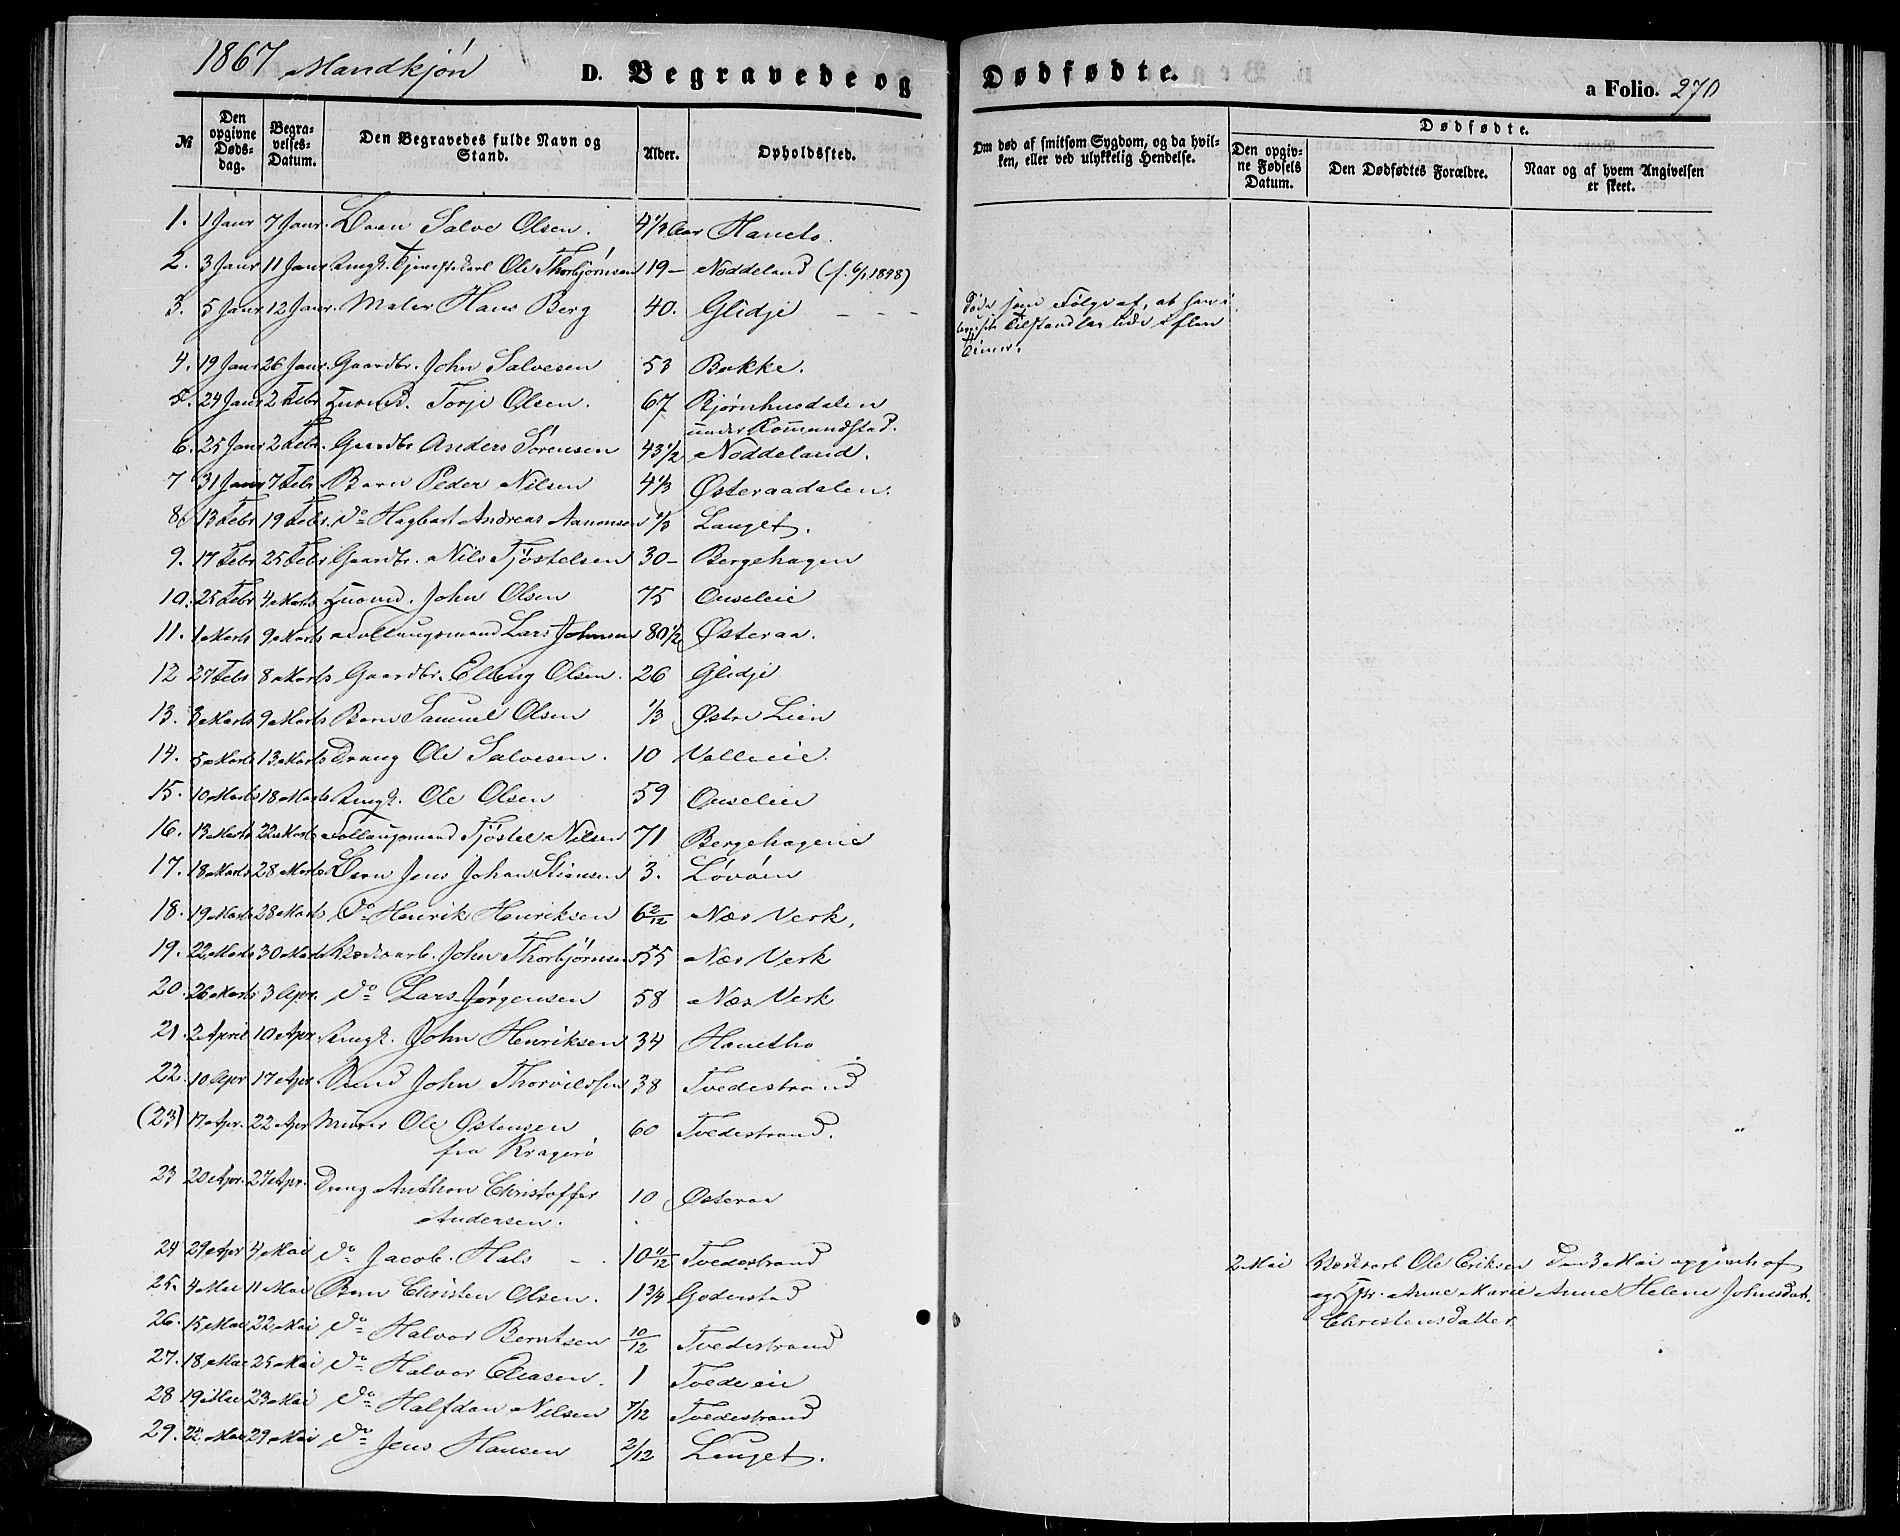 1867 Mandkjøn
D. Begravede og Dødfødte.
a Folio. 270
№ | Den opgivne Dødsdag. | Begravelses-Datum. | Den Begravedes fulde Navn og Stand. | Alder. | Opholdssted. | Om død af smitsom Sygdom, og da hvilken, eller ved ulykkelig Hendelse. | Dødfødte. | Den opgivne Fødsels Datum. | Den Dødfødtes Forældre. | Naar og af hvem Angivelsen er skeet.
1. 1 Janr 7 Janr. Barn Salve Olsen. 4 1/3 Aar Haneto.
2. 3 Janr 11 Janr Ungk. Tjenestekarl Ole Thorbjørnsen 19 – Noddeland (f. 6/1 1848)
3. 5 Janr 12 Janr. Maler Hans Berg 40. Glidje – – – Døde som Følge af, at han i
Tilstand
4. 19 Janr 26 Janr. Gaardbr. John Salvesen 53 Bakke.
5. 24 Janr 2 Febr Huusmd. Torje Olsen. 67 Bjørnhusdalen
under Rommundstad.
6. 25 Janr 2 Febr. Gaardbr Anders Sørensen 43 1/2 Noddeland.
7 31 Janr 7 Febr. Barn Peder Nilsen 4 1/3 Østeraadalen.
8. 13 Febr 19 Febr. Do Hagbart Andreas Aanonsen 1/3 Lauget.
9. 17 Febr 25 Febr Gaardbr. Nils Tjøstelsen 30 – Bergehagen
10. 25 Febr 4 Marts Huusmd. John Olsen 75 Ouseleie
11. 1 Marts 9 Marts Follaugsmand Lars Johnsen 80 1/2 Østeraa.
12 27 Febr 8 Marts Gaardbr. Elling Olsen. 26 Glidje
13. 3 Marts 9 Marts Barn Samuel Olsen 1/3 Østre Lien
14. 5 Marts 13 Marts Dreng Ole Salvesen. 10 Valleeie.
15. 10 Marts 18 Marts Ungk. Ole Olsen 59 Ouseleie
16. 13 Marts 22 Marts Follaugsmand Tjøstel Nilsen 71 Bergehagene
17. 18 Marts 28 Marts Barn Jens Johan Stiansen 3. Løvøen
18. 19 Marts 28 Marts Do Henrik Henriksen 6 2/12 Næs Verk.
19. 22 Marts 30 Marts Værksarb. John Thorbjørnsen 55 Næs Verk
20. 26 Marts 3 Apr. Do Lars Jørgensen 58 Næs Verk
21. 2 April 10 Apr. Ungk. John Henriksen 34 Hanetho
22. 10 Apr 17 Apr. John 38 Tvedestrand
(23) 17 Apr. 22 Apr Murer Ole Østensen 60 Tvedestrand.
fra Kragerø
23 20 Apr. 27 Apr. Dreng Anthon Christoffer 10 Østeraa
Andersen.
24 29 Apr 4 Mai Do Jacob Hals – . 10 11/12 Tvedestrand 2 Mai Værksarb Ole Eriksen Den 3 Mai opgivet af
25. 4 Mai 11 Mai Barn Christen Olsen. 1 3/4 Goderstad og Hstr. Anne Marie Anne Helene Johnsdatt.
26. 15 Mai 22 Mai Do Halvor Berntsen 10/12 Tvedestrand Christensdatter
27. 18 Mai 25 Mai Do Halvor Eliasen. 1 Tvedeeie
28 19 Mai 23 Mai Do Halfdan Nilsen 7/12 Tvedestrand
29. 22 Mai 29 Mai Do Jens Hansen 2/12 Lauget.